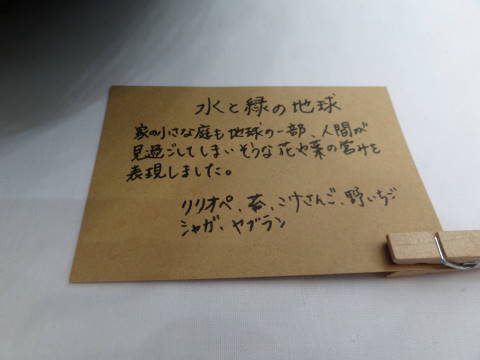 水と緑の地球
家の小さな庭も地球の一部、人間が
見過ごしてしまいそうな花や葉の営みを
表現しました。
リリオペ、苔、こけさんご、野いちご
シャガ、ヤブラン